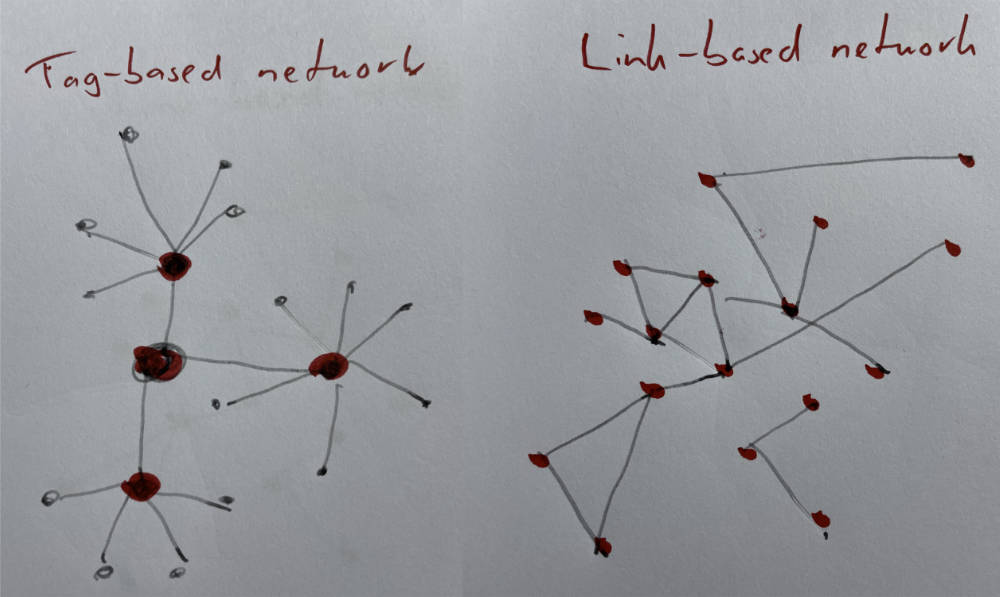 Tag-based network
Link-based network